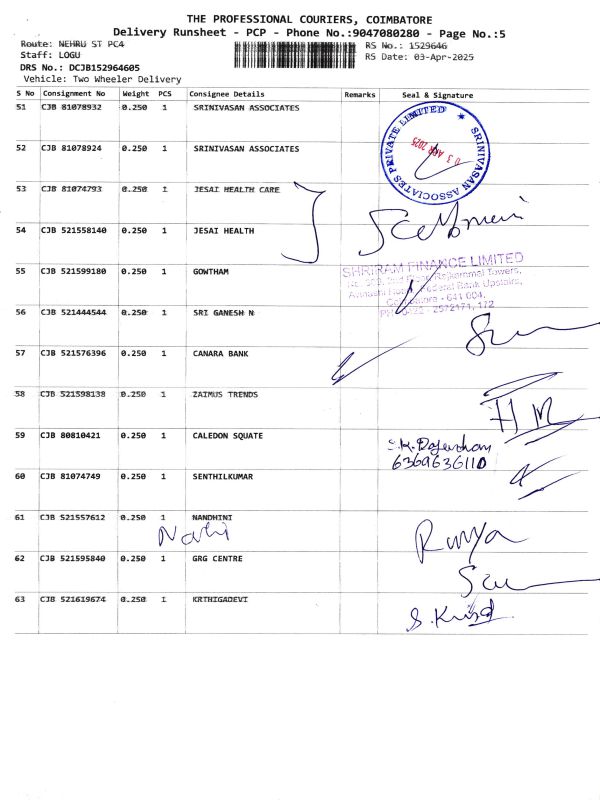 THE PROFESSIONAL COURIERS, COIMBATORE
Delivery Runsheet - PCP - Phone No.:9047080280 - Page No.:5
Route: NEHRU ST PC4 RS No.: 1529646
Staff: LOGU RS Date: 03-Apr-2025
DRS No.: DCJB152964605
Vehicle: Two Wheeler Delivery
S No Consignment No Weight PCS Consignee Details Remarks Seal & Signature
51 CJB 81078932 0.250 1 SRINIVASAN ASSOCIATES
SRINIVASAN ASSOCIATES PRIVATE LIMITED
03 APR 2025
52 CJB 81078924 0.250 1 SRINIVASAN ASSOCIATES
53 CJB 81074793 0.250 1 JESAI HEALTH CARE
54 CJB 521558140 0.250 1 JESAI HEALTH
55 CJB 521599180 0.250 1 GOWTHAM
SHRIRAM FINANCE LIMITED
Rajkammal Towers,
Federal Bank Upstairs,
Coimbatore - 641 004.
PH : 0422 - 2572171, 172
56 CJB 521444544 0.250 1 SRI GANESH N
57 CJB 521576396 0.250 1 CANARA BANK
58 CJB 521598138 0.250 1 ZAIMUS TRENDS
59 CJB 80810421 0.250 1 CALEDON SQUATE
S.K.
6369636110
60 CJB 81074749 0.250 1 SENTHILKUMAR
61 CJB 521557612 0.250 1 NANDHINI
Ramya
62 CJB 521595840 0.250 1 GRG CENTRE
63 CJB 521619674 0.250 1 KRTHIGADEVI